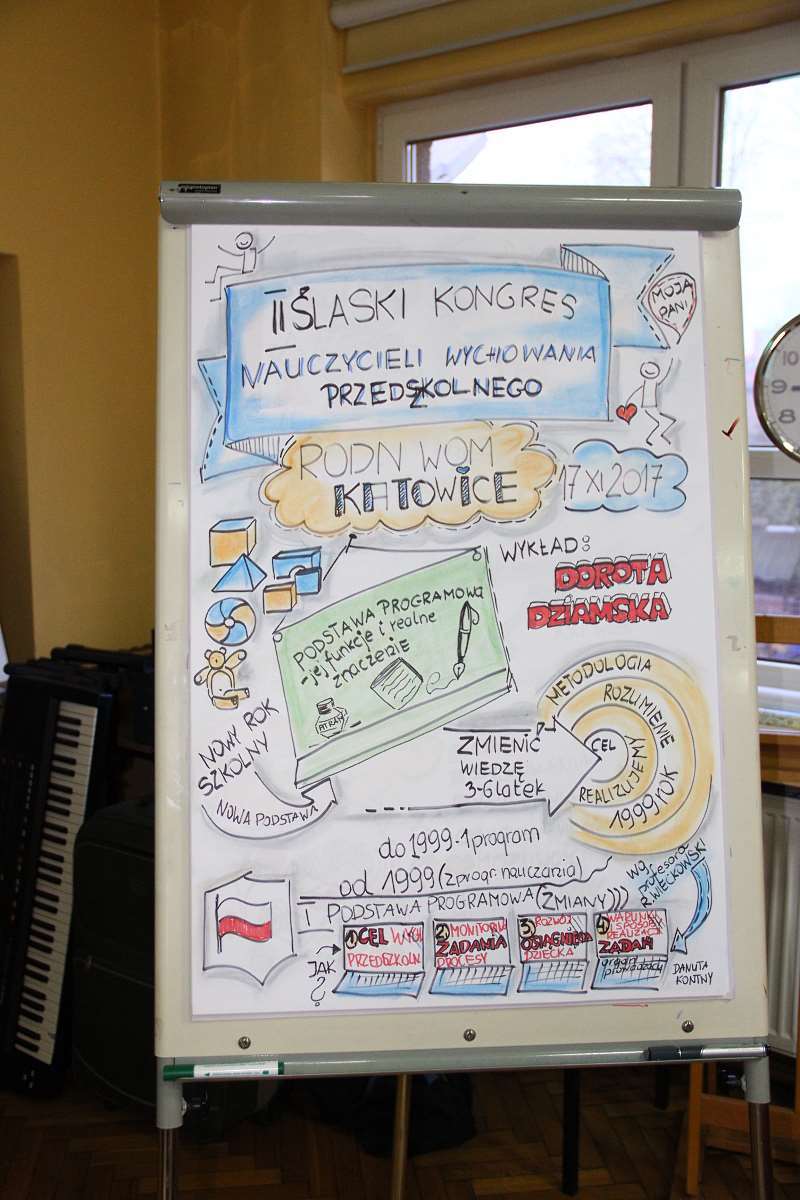 II ŚLASKI KONGRES
NAUCZYCIELI WYCHOWANIA
PRZEDSZKOLNEGO
MOJA
PANI
RODN WOM
KATOWICE
17 XI 2017
WYKŁAD:
DOROTA
DZIAMSKA
PODSTAWA PROGRAMOWA
- jej funkcje i realne
znaczenie
ATRAM
NOWY ROK
SZKOLNY
NOWA PODSTAWA
ZMIENIĆ
WIEDZĘ
3-6latek
METODOLOGIA
ROZUMIENIE
CEL
REALIZUJEMY
1999 ROK
do 1999-1 program
od 1999 (z progr. nauczania)
I PODSTAWA PROGRAMOWA (ZMIANY)))
wg.
profesora
R. WIĘCKOWSKI
JAK
?
1) CEL WYCH
PRZEDSZKOLN
2) MONITORUJ
ZADANIA
PROCESY
3) ROZWÓJ
OSIĄGNIĘCIA
DZIECKA
4) WARUNKI
I SPOSOBY
REALIZACJI
ZADAŃ
organ
prowadzący
DANUTA
KONTNY
10
9
8